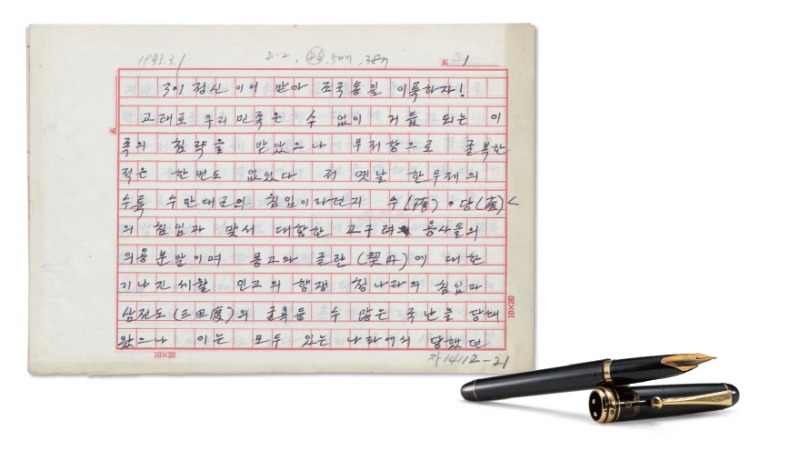 1993.3.1
1
3이 정신 이어 받아 조국통일 이룩하자!
고래로 우리 민족은 수 없이 거듭 되는 이
족의 침략을 받았으나 무저항으로 굴복한
적은 한번도 없었다 저 옛날 한무제의
수륙 수만대군의 침입이라던지 수(隋)·당(唐)
의 침입과 맞서 대항한 고구려 용사들의
의용분발이며 몽고와 글란(契丹)에 대한
기나긴 세월 인고의 항쟁 청나라의 침입과
삼전도(三田渡)의 굴욕등 수 많은 국난을 당해
왔으나 이는 모두 있는 나라에서 당했던
10×20
10×20
자14112-21